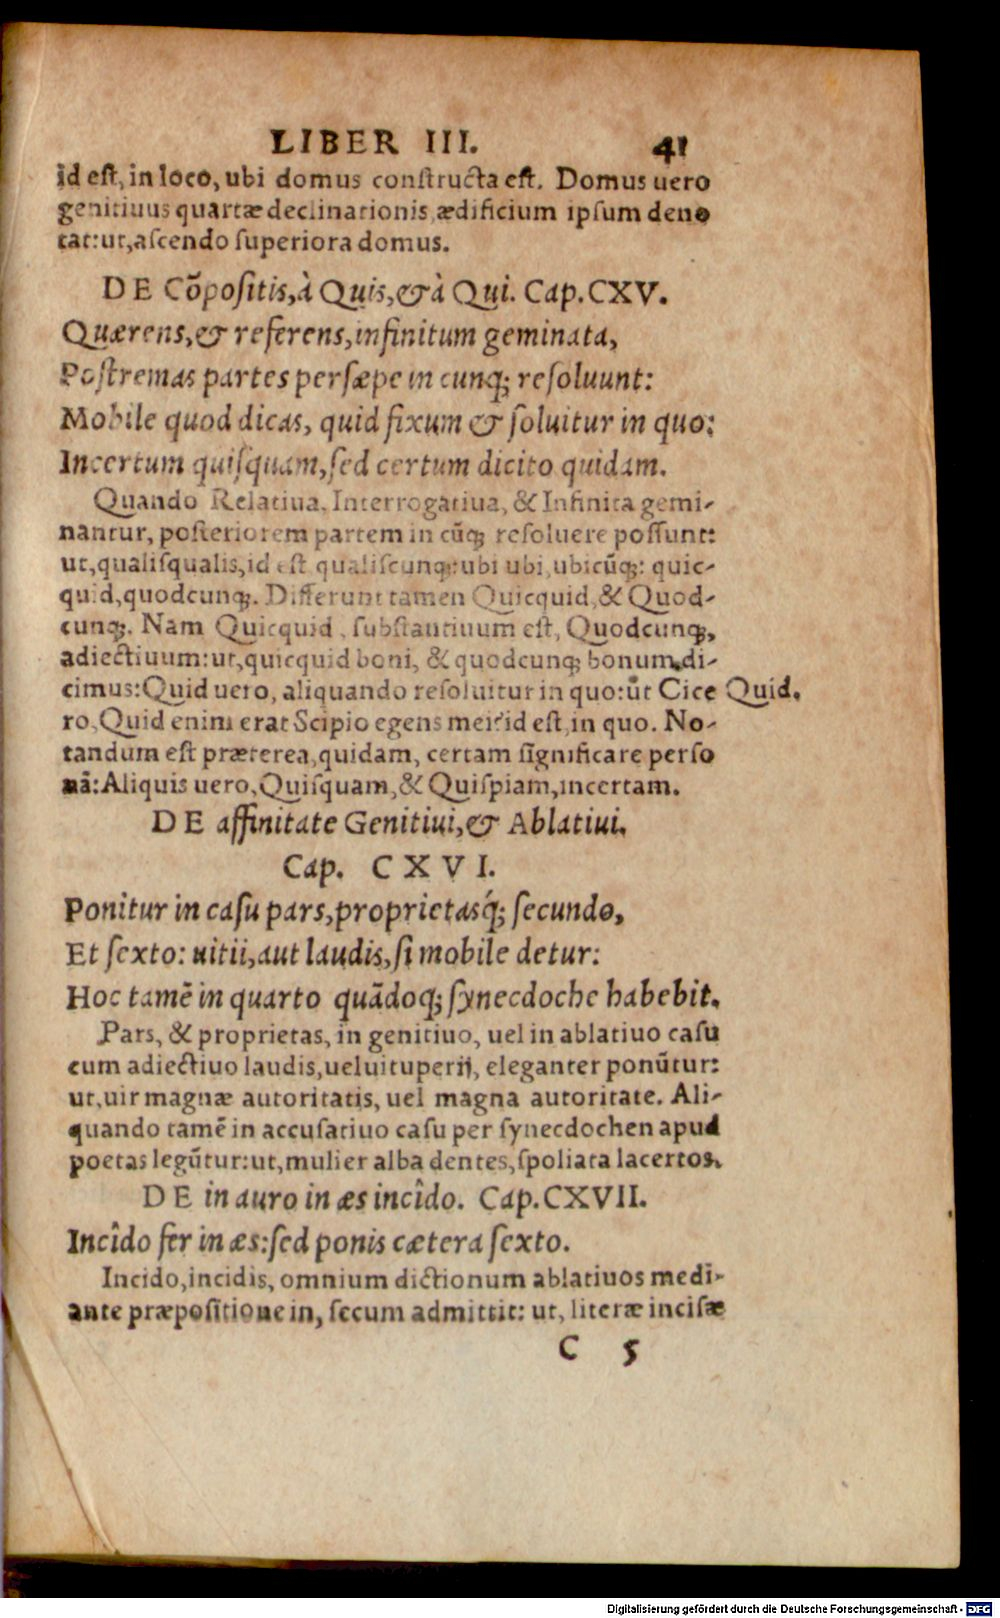 LIBER III. 41
id eſt, in loco, ubi domus conſtructa eſt. Domus uero
genitiuus quartæ declinationis, ædificium ipſum deno
tat: ut, aſcendo ſuperiora domus.
DE Cõpoſitis, à Quis, & à Qui. Cap. CXV.
Quærens, & referens, infinitum geminata,
Poſtremas partes perſæpe in cunq; reſoluunt:
Mobile quod dicas, quid fixum & ſoluitur in quo:
Incertum quiſquam, ſed certum dicito quidam.
Quando Relatiua, Interrogatiua, & Infinita gemi-
nantur, poſteriorem partem in cũq; reſoluere poſſunt:
ut, qualiſqualis, id eſt qualiſcunq;: ubi ubi, ubicũq;: quic-
quid, quodcunq;. Differunt tamen Quicquid, & Quod-
cunq;. Nam Quicquid, ſubſtantiuum eſt, Quodcunq;,
adiectiuum: ut, quicquid boni, & quodcunq; bonum, di-
cimus: Quid uero, aliquando reſoluitur in quo: ut Cice Quid.
ro, Quid enim erat Scipio egens mei? id eſt, in quo. No-
tandum eſt præterea, quidam, certam ſignificare perſo
nã: Aliquis uero, Quiſquam, & Quiſpiam, incertam.
DE affinitate Genitiui, & Ablatiui.
Cap. CXVI.
Ponitur in caſu pars, proprietasq́; ſecundo,
Et ſexto: uitii, aut laudis, ſi mobile detur:
Hoc tamẽ in quarto quãdoq; ſynecdoche habebit.
Pars, & proprietas, in genitiuo, uel in ablatiuo caſu
cum adiectiuo laudis, uel uituperij, eleganter ponũtur:
ut, uir magnæ autoritatis, uel magna autoritate. Ali-
quando tamẽ in accuſatiuo caſu per ſynecdochen apud
poetas legũtur: ut, mulier alba dentes, ſpoliata lacertos.
DE in auro in æs incîdo. Cap. CXVII.
Incîdo fer in æs: ſed ponis cætera ſexto.
Incido, incidis, omnium dictionum ablatiuos medi-
ante præpoſitione in, ſecum admittit: ut, literæ inciſæ
C 5
Digitalisierung gefördert durch die Deutsche Forschungsgemeinschaft - DFG